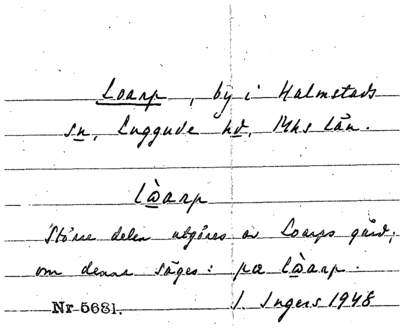 Loarp, by i Halmstads
sn, Luggude hd, Mhs län.
lò̲arp
Större delen utgöres av Loarps gård;
om denna säges: pæ lò̲arp.
Nr 5681. I. Ingers 1948